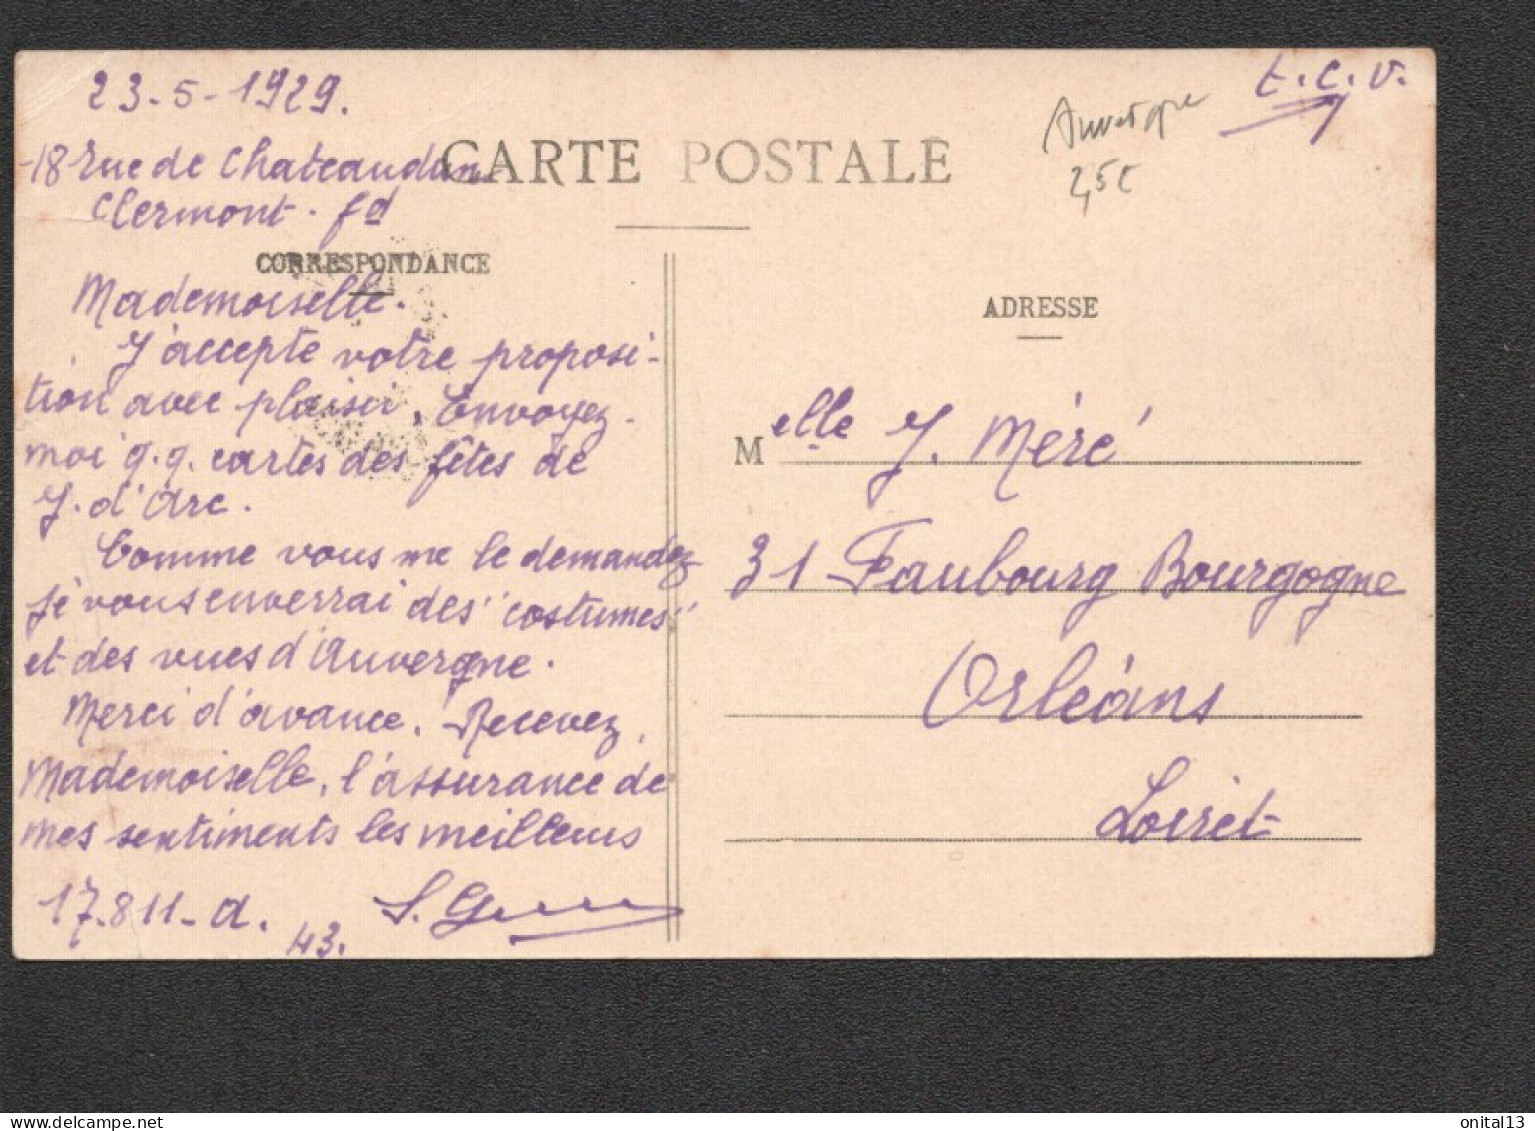 23-5-1929.
t.c.v.
Auvergne
2,5€
CARTE POSTALE
-18 rue de Chateaudun
Clermont. fd
CORRESPONDANCE
Mademoiselle.
J'accepte votre proposi-
tion avec plaisir. Envoyez-
moi q.q. cartes des fêtes de
J. d'Arc.
Comme vous me le demandez
je vous enverrai des "costumes"
et des vues d'Auvergne.
Merci d'avance. Recevez,
Mademoiselle, l'assurance de
mes sentiments les meilleurs
17.811-A.
43.
ADRESSE
Melle J. Méré
31 Faubourg Bourgogne
Orléans
Loiret
onital13